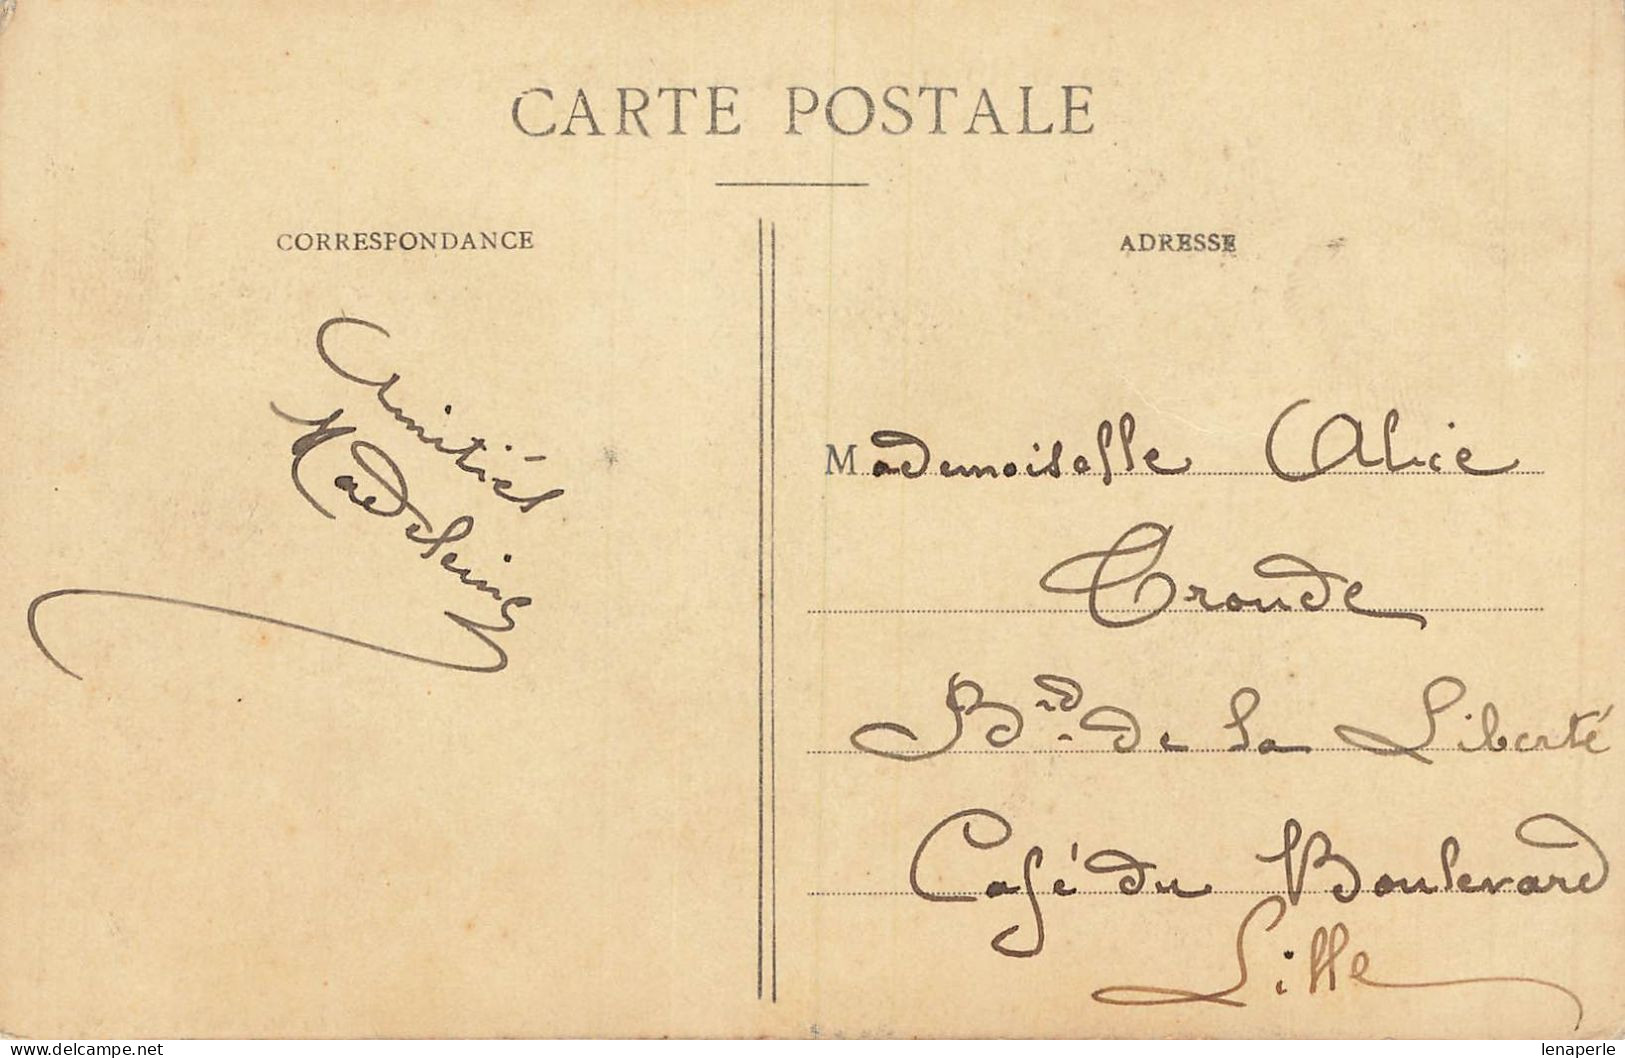 CARTE POSTALE
CORRESPONDANCE
Amitiés
Madeleine
ADRESSE
Mademoiselle Alice
Troude
Bd. de la Liberté
Café du Boulevard
Lille
www.delcampe.net
lenaperle